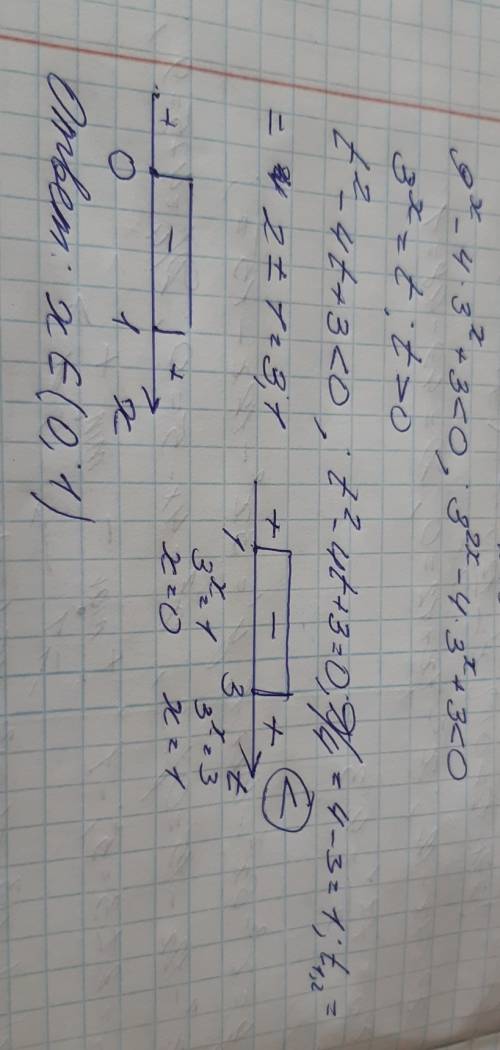 9ˣ - 4·3ˣ + 3 < 0; 3²ˣ - 4·3ˣ + 3 < 0
3ˣ = t; t > 0
t² - 4t + 3 < 0; t² - 4t + 3 = 0; D/4 = 4 - 3 = 1; t₁,₂ =
= 2 ± 1 = 3; 1
+ - +
1 3 t
<
3ˣ = 1 3ˣ = 3
x = 0 x = 1
+ - +
0 1 x
Ответ: x ∈ (0; 1)